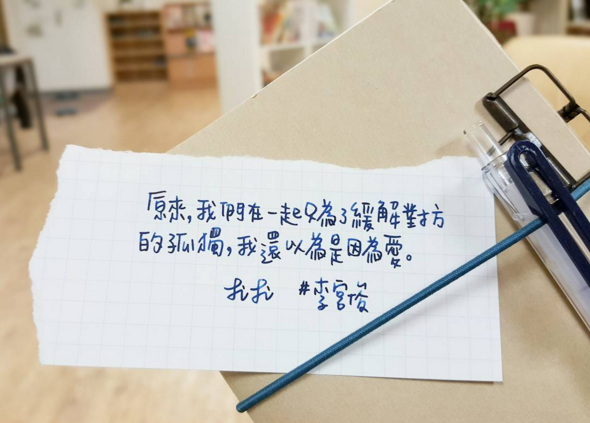 原來,我們在一起只為了緩解對方
的孤獨,我還以為是因為愛。
#李宮俊